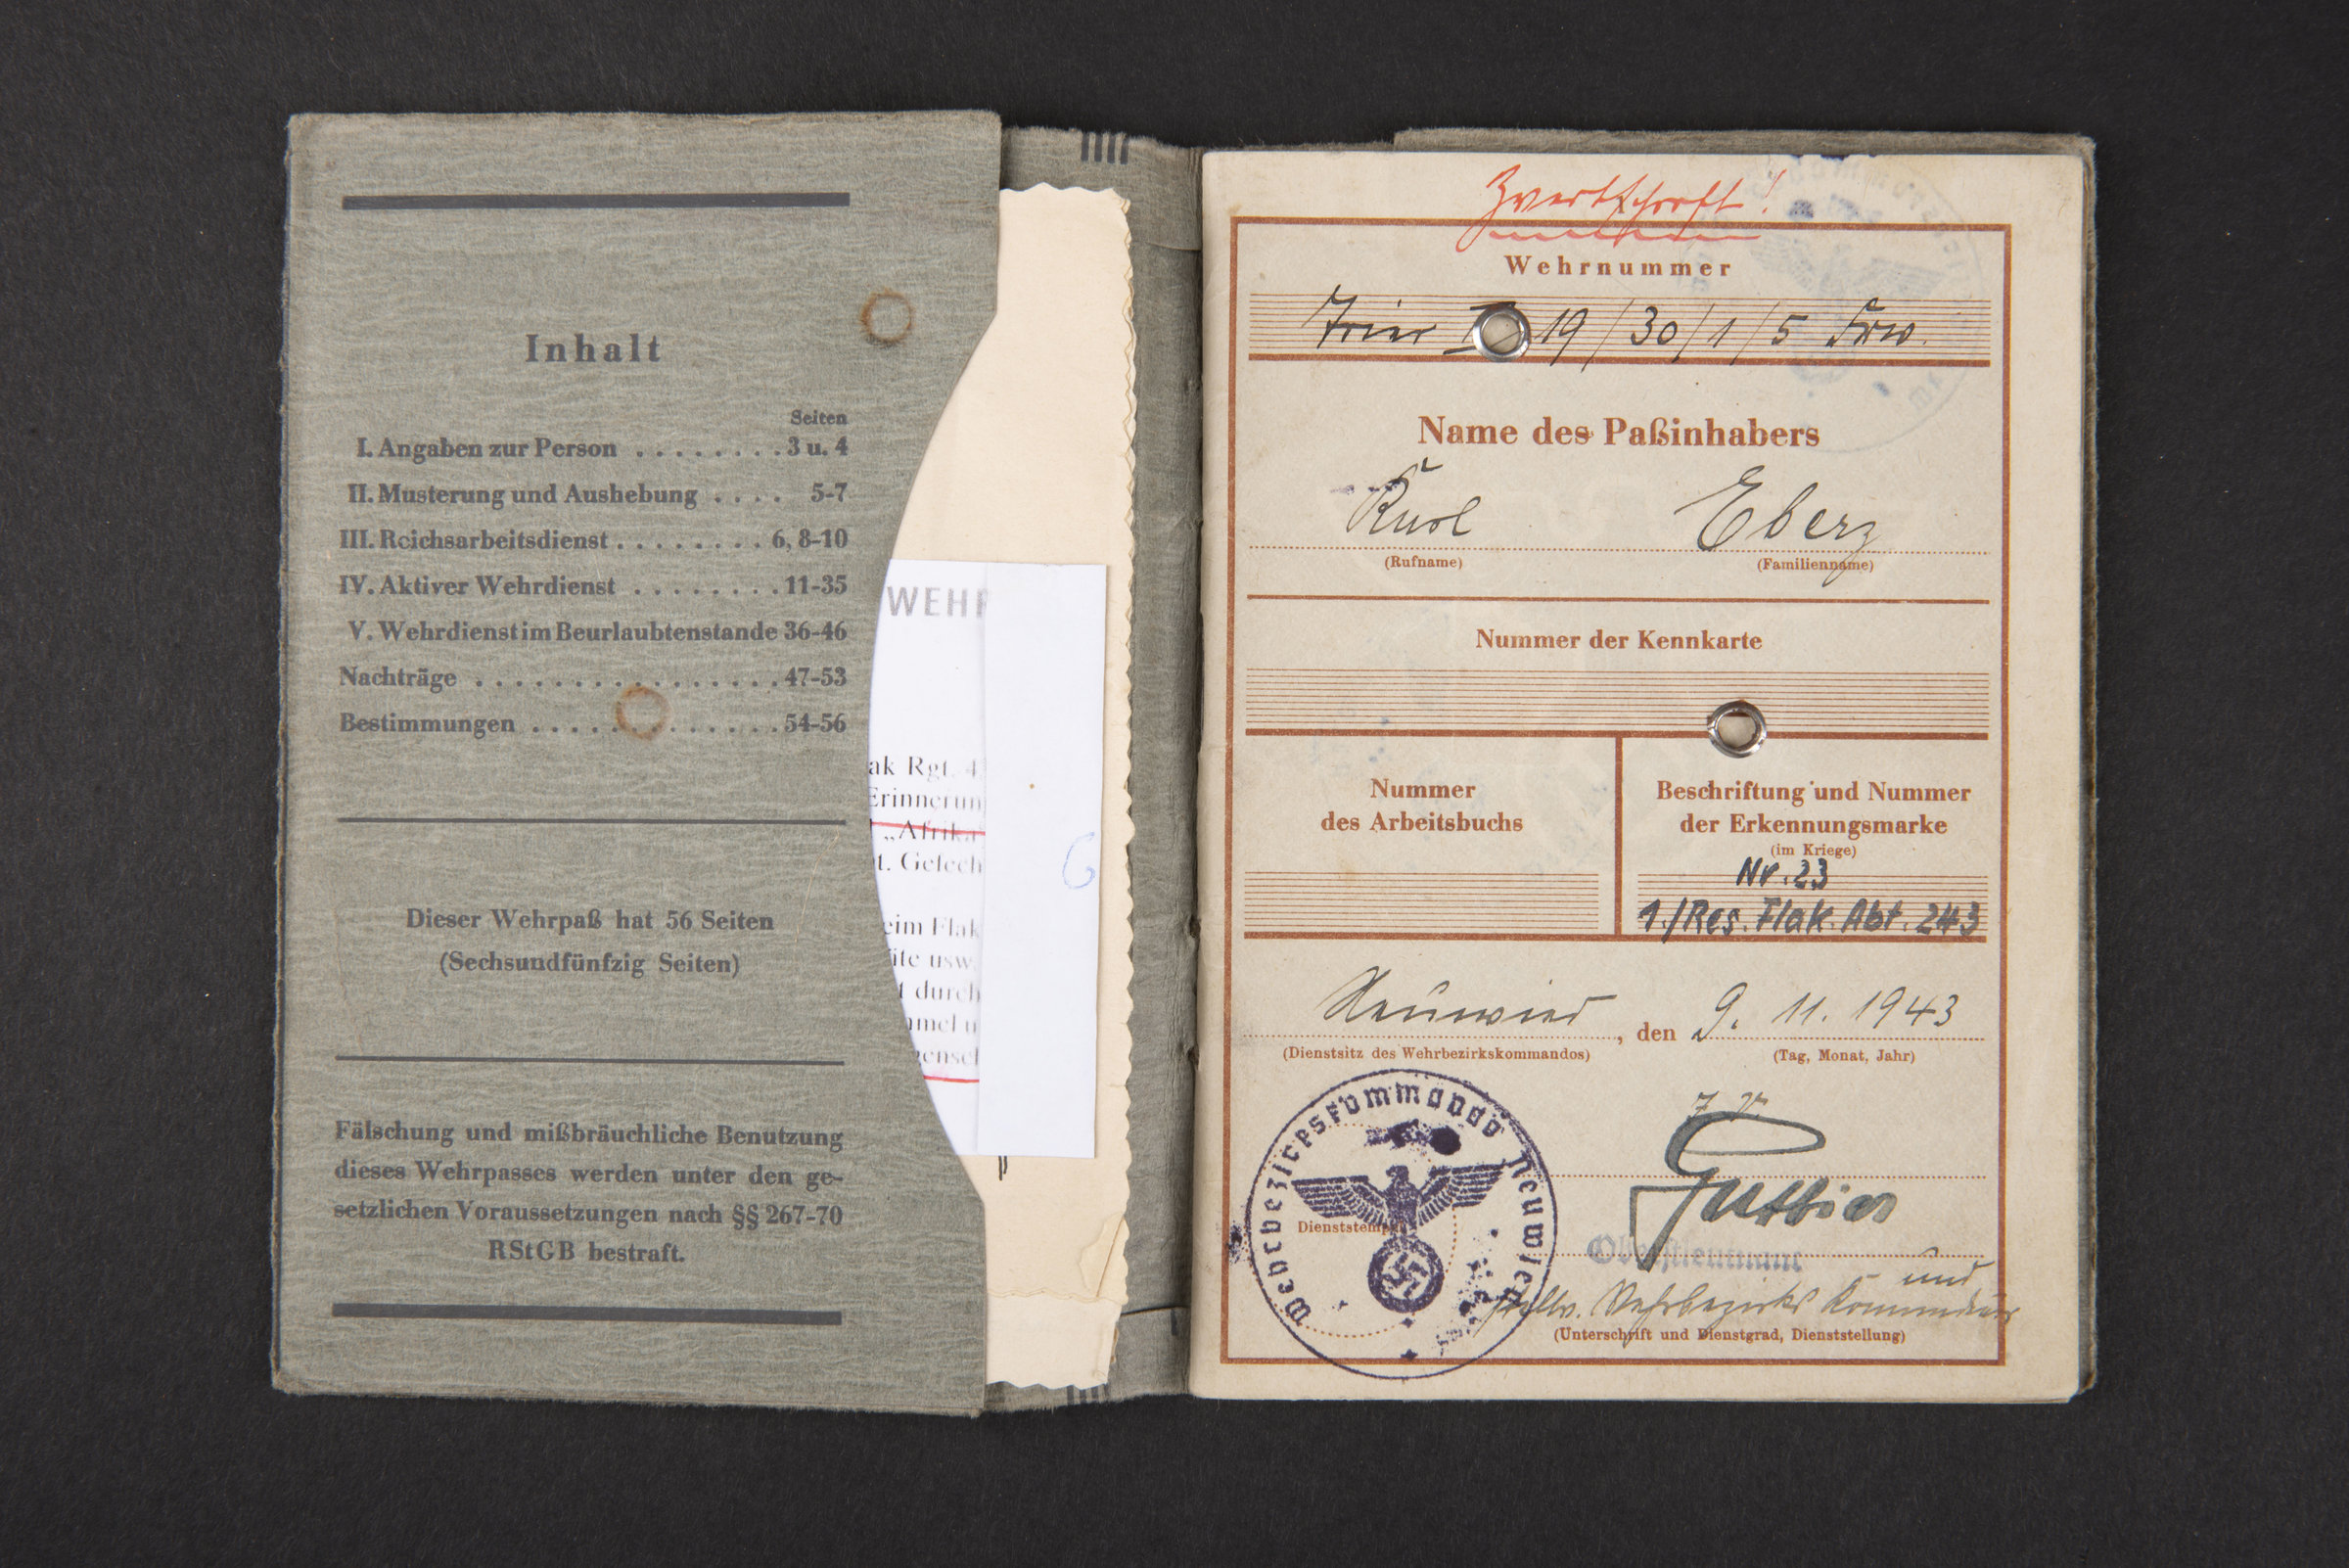 Inhalt
Seiten
I. Angaben zur Person ........ 3 u. 4
II. Musterung und Aushebung .... 5-7
III. Reichsarbeitsdienst ........ 6, 8-10
IV. Aktiver Wehrdienst ........ 11-35
V. Wehrdienst im Beurlaubtenstande 36-46
Nachträge ................ 47-53
Bestimmungen .............. 54-56
Dieser Wehrpaß hat 56 Seiten
(Sechsundfünfzig Seiten)
Fälschung und mißbräuchliche Benutzung
dieses Wehrpasses werden unter den ge-
setzlichen Voraussetzungen nach §§ 267-70
RStGB bestraft.
WEHR
ak Rgt. 4
Erinnerun
„Afrika
t. Gefech
eim Flak
ite usw.
t durch
mmel u
genscl
6
Zweitschrift!
Wehrnummer
Trier I 19/30/1/5 Frw.
Name des Paßinhabers
Karl Eberz
(Rufname) (Familienname)
Nummer der Kennkarte
Nummer
des Arbeitsbuchs
Beschriftung und Nummer
der Erkennungsmarke
(im Kriege)
Nr. 23
1./Res. Flak. Abt. 243
Neuwied, den 9. 11. 1943
(Dienstsitz des Wehrbezirkskommandos) (Tag, Monat, Jahr)
Wehrbezirkskommando Neuwied
Dienststempel
Oberstleutnant
und
stellv. Wehrbezirks Kommandeur
(Unterschrift und Dienstgrad, Dienststellung)